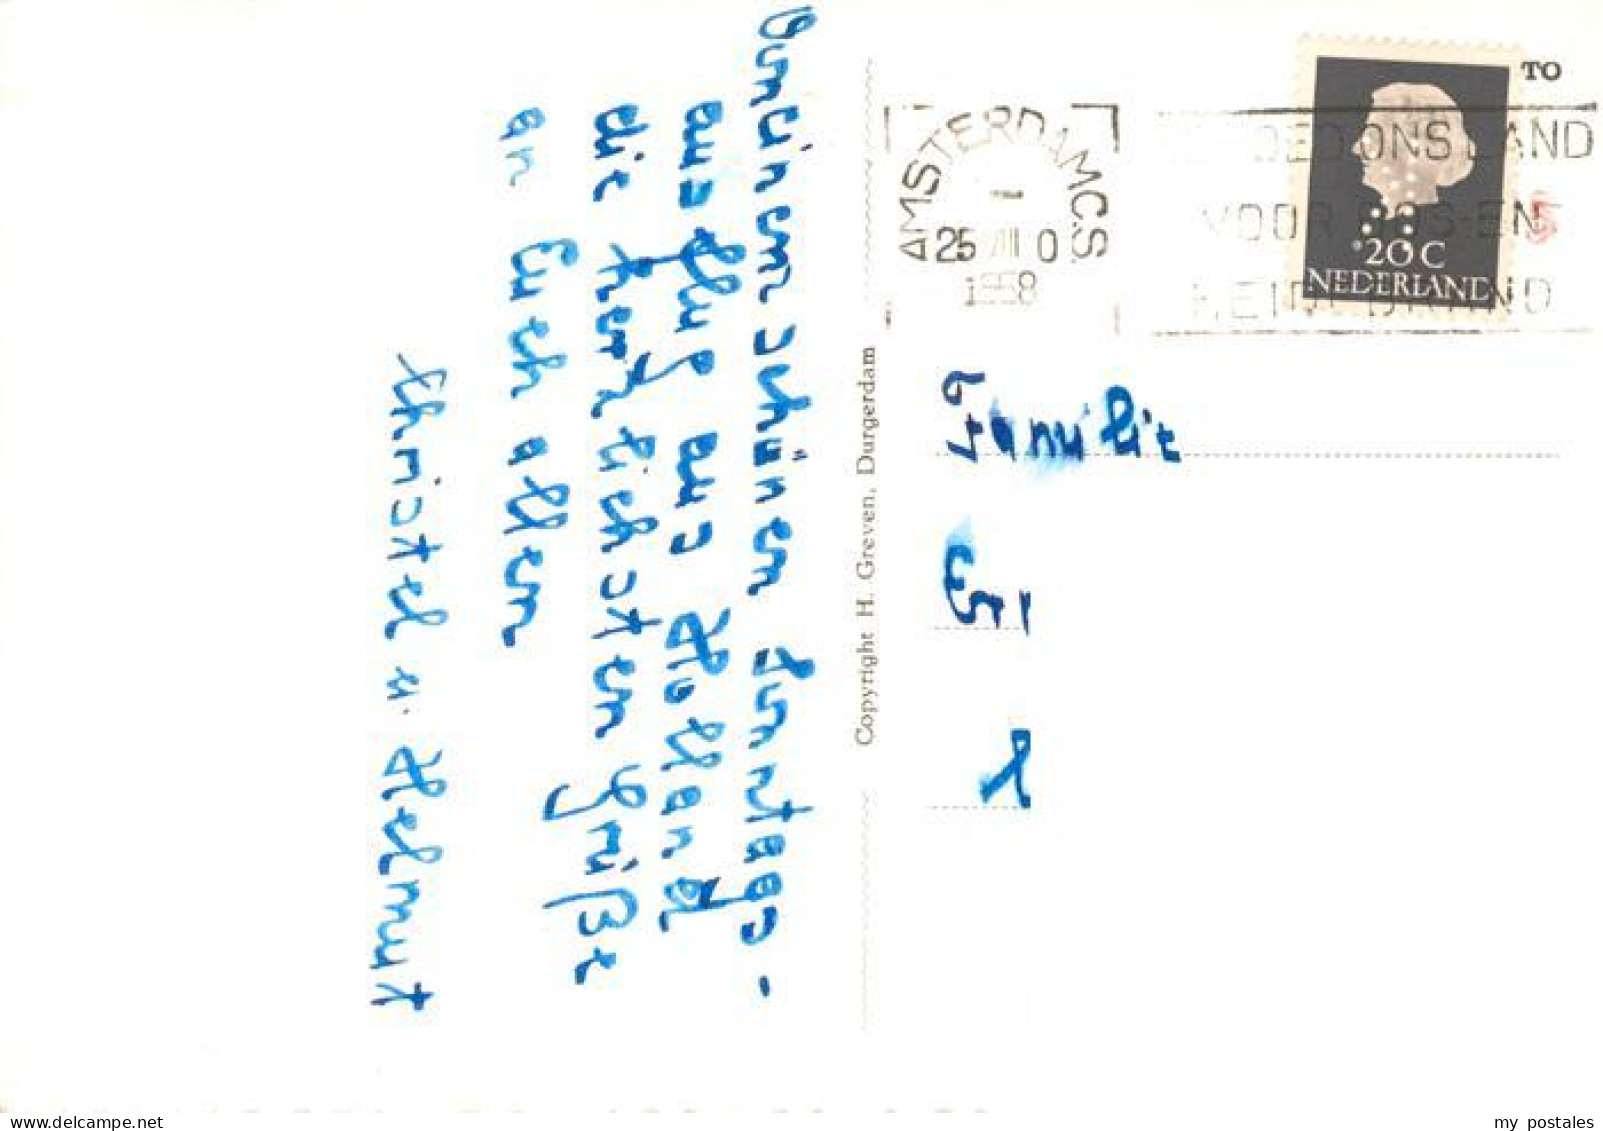 Von einem schönen Sonntags-
ausflug aus Holland
die herzlichsten Grüße
an Euch allen
Christel u. Helmut
Copyright H. Greven, Durgerdam
AMSTERDAM C.S
25 VIII 0
1958
TO
20C
NEDERLAND
ONS LAND
VOOR BOS EN
Familie
www.delcampe.net
my postales